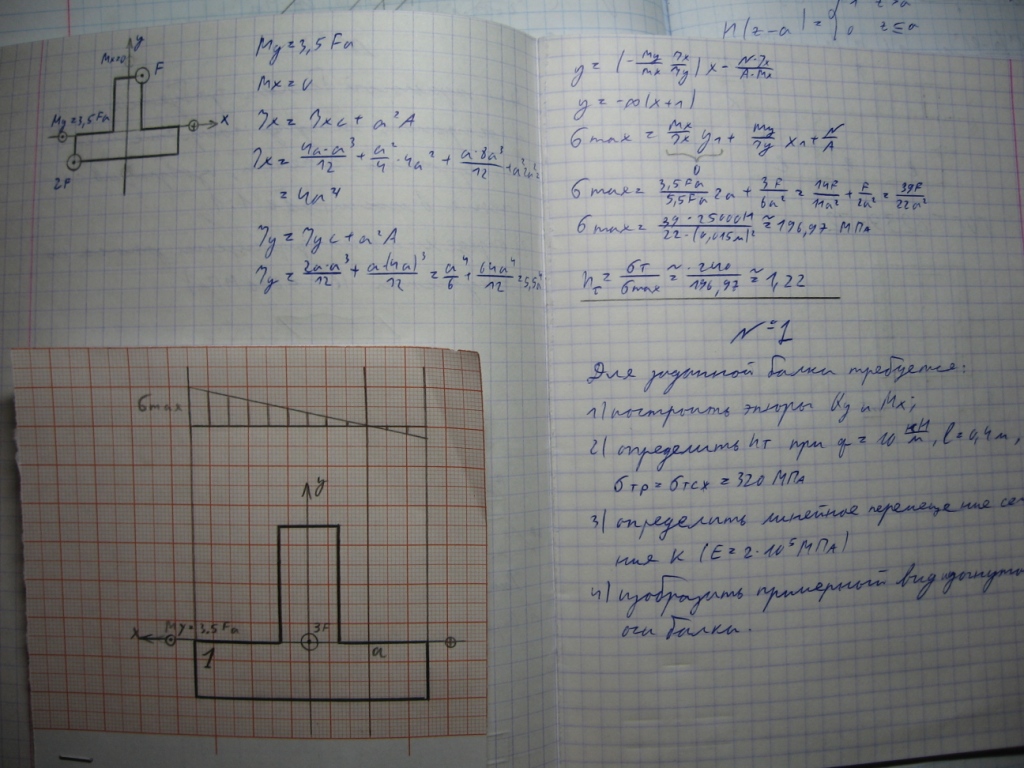 H(z-a) = { 1 z>a
0 z≤a
y
Mx=0
F
My=3,5Fa
x
2F
My = 3,5 Fa
Mx = 0
Jx = Jxc + a²A
Jx = 4a·a³/12 + a²/4 · 4a² + a·8a³/12 + a²2a² =
= 4a⁴
Jy = Jyc + a²A
Jy = 2a·a³/12 + a(4a)³/12 = a⁴/6 + 64a⁴/12 = 5,5a⁴
σmax
y
x
My=3.5Fa
3F
1
a
y = (- My/Mx Jx/Jy) x - N·Jx/A·Mx
y = -∞(x+1)
σmax = Mx/Jx y₁ + My/Jy x₁ + N/A
0
σmax = 3,5Fa/5,5Fa 2a + 3F/6a² = 14F/11a² + F/2a² = 39F/22a²
σmax = 39·25000H/22·(0,015м)² ≈ 196,97 МПа
nт = σт/σmax ≈ 240/196,97 ≈ 1,22
N=1
Для заданной балки требуется:
1) построить эпюры Qy и Mx;
2) определить nт при q = 10 кН/м, l = 0,4 м,
σтр = σтсж = 320 МПа
3) определить линейное перемещение сече
ния К (E = 2·10⁵ МПа)
4) изобразить примерный вид изогнутой
оси балки.